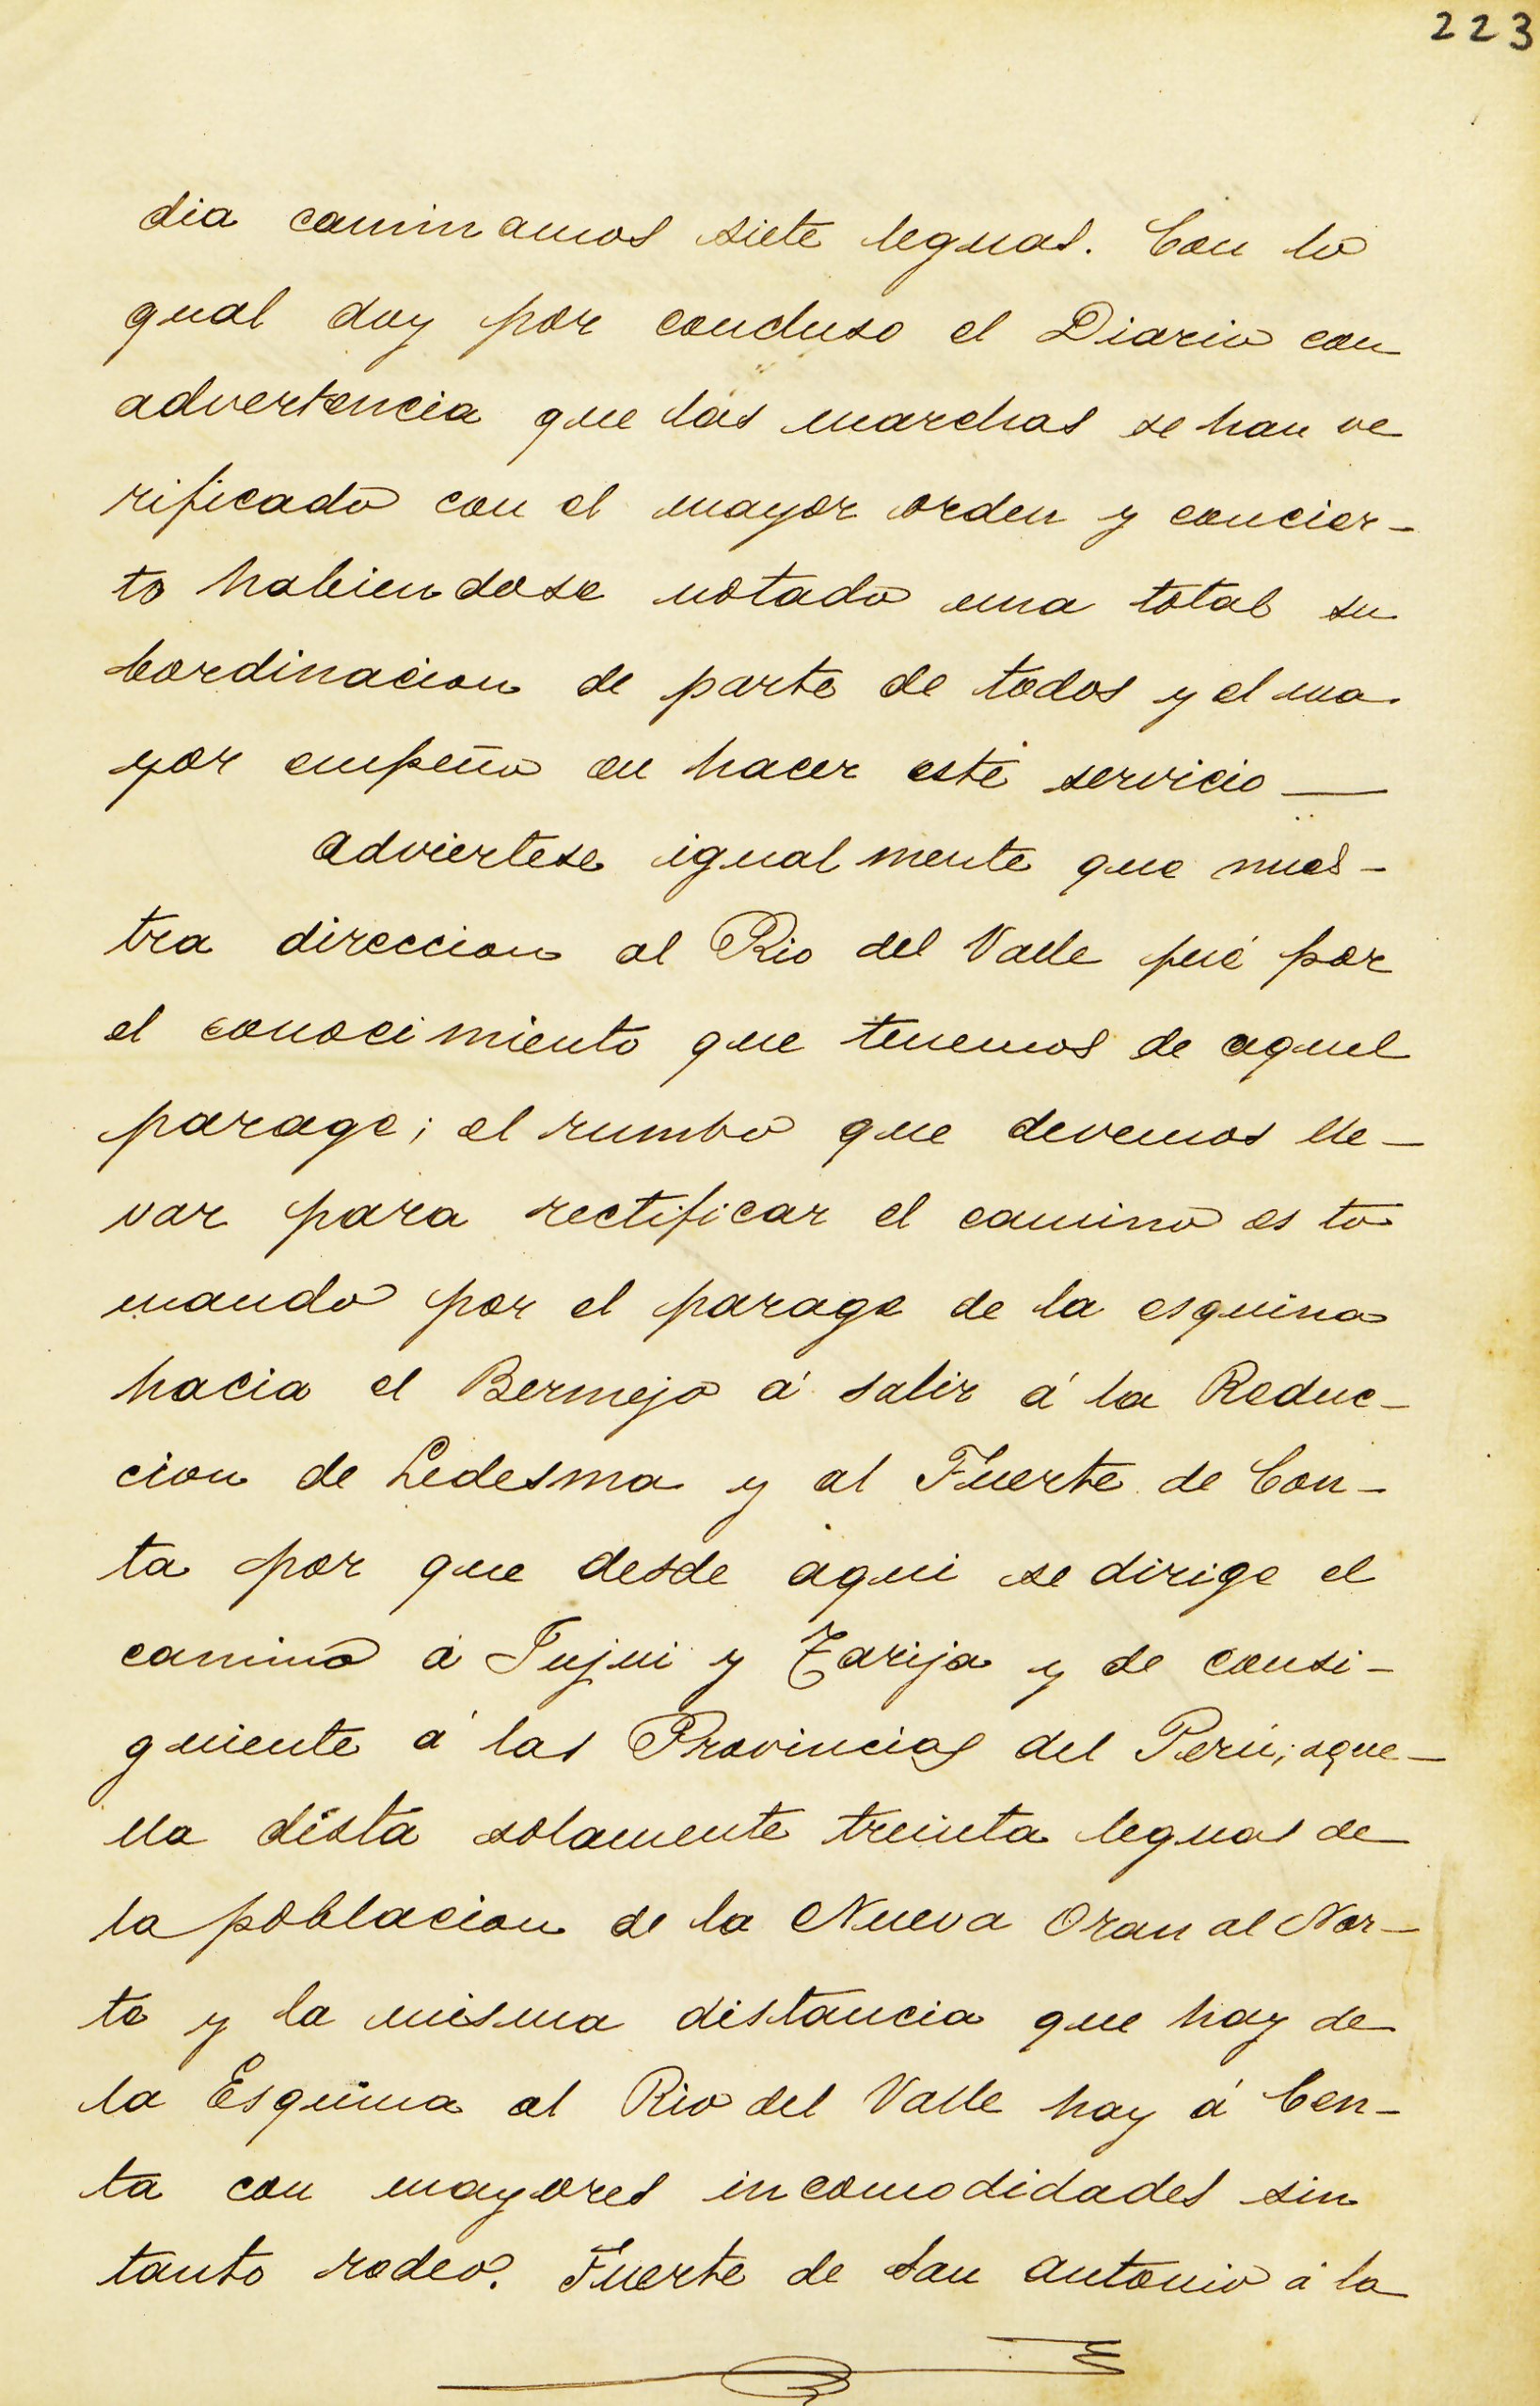 223
dia caminamos siete leguas. Con lo
qual doy por concluso el Diario con
advertencia que las marchas se han ve
rificado con el mayor orden y concier-
to habiendose notado una total su
bordinacion de parte de todos y el ma
yor empeño en hacer este servicio —
adviertese igualmente que nues-
tra direccion al Rio del Valle fué por
el conocimiento que tenemos de aquel
parage; el rumbo que devemos lle-
var para rectificar el camino es to
mando por el parage de la esquina
hacia el Bermejo á salir á la Reduc-
cion de Ledesma y al Fuerte de Cen-
ta por que desde aqui se dirige el
camino á Jujui y Tarija y de consi-
guiente á las Provincias del Perú; aque-
lla dista solamente treinta leguas de
la poblacion de la Nueva Oran al Nor-
te y la misma distancia que hay de
la Esquina al Rio del Valle hay á Cen-
ta con mayores incomodidades sin
tanto rodeo. Fuerte de San Antonio á la